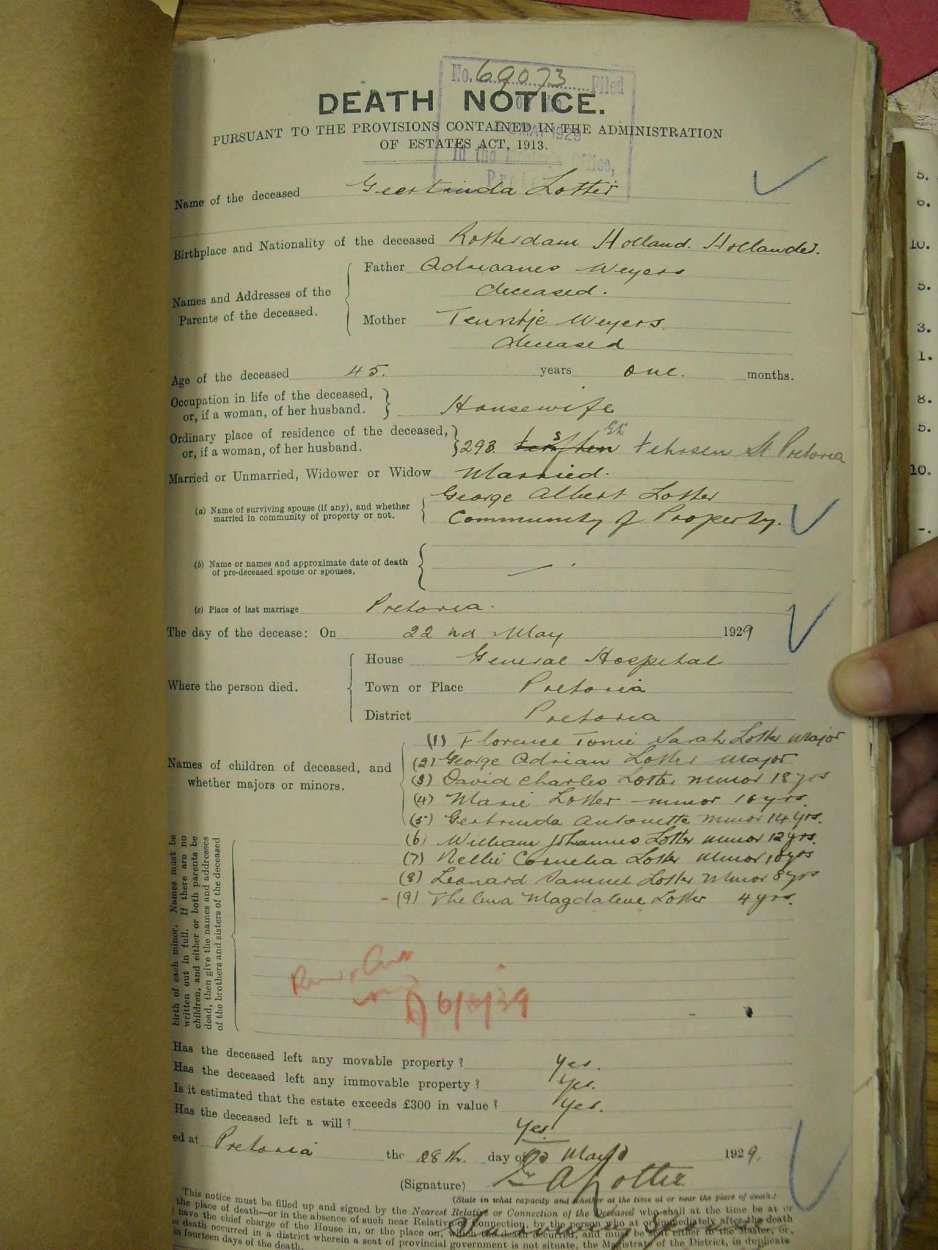 No. 69073 Filed
MAY 1929
In the Office,
DEATH NOTICE.
PURSUANT TO THE PROVISIONS CONTAINED IN THE ADMINISTRATION
OF ESTATES ACT, 1913.
Name of the deceased Geertruida Lotter
Birthplace and Nationality of the deceased Rotterdam Holland. Hollander.
Names and Addresses of the Parents of the deceased.
Father Adriaanes Weyers
deceased.
Mother Teuntje Weyers.
deceased
Age of the deceased 45. years one. months.
Occupation in life of the deceased,
or, if a woman, of her husband. Housewife
Ordinary place of residence of the deceased,
or, if a woman, of her husband. 293 Fehrsen St Pretoria
Married or Unmarried, Widower or Widow Married.
(a) Name of surviving spouse (if any), and whether
married in community of property or not.
George Albert Lotter
Community of Property.
(b) Name or names and approximate date of death
of pre-deceased spouse or spouses. —
(c) Place of last marriage Pretoria.
The day of the decease: On 22nd May 1929
Where the person died.
House General Hospital
Town or Place Pretoria
District Pretoria
Names of children of deceased, and
whether majors or minors.
(1) Florence Tonie Sarah Lotter major
(2) George Adrian Lotter major
(3) David Charles Lotter minor 18 yrs
(4) Marie Lotter - minor 16 yrs.
(5) Gertruida Antonette minor 14 yrs.
(6) William Johannes Lotter minor 12 yrs.
(7) Nellie Cornelia Lotter minor 10 yrs
(8) Leonard Samuel Lotter minor 8 yrs
(9) Thelma Magdalene Lotter 4 yrs.
birth of each minor. Names must be
written out in full. If there are no
children, and either or both parents be
dead, then give the names and addresses
of the brothers and sisters of the deceased
6/6/29
Has the deceased left any movable property? Yes.
Has the deceased left any immovable property? Yes.
Is it estimated that the estate exceeds £300 in value? Yes.
Has the deceased left a will? Yes.
ed at Pretoria the 28th. day of May 1929.
(Signature) G A Lotter
(State in what capacity and whether at the time at or near the place of death.)
This notice must be filled up and signed by the Nearest Relative or Connection of the Deceased who shall at the time be at or
the place of death—or in the absence of such near Relative or Connection, by the person who at or immediately after the death
have the chief charge of the House in, or the place on, which the death occurred, and must be sent either to the Master, or,
death occurred in a district wherein a seat of provincial government is not situate, the Magistrate of the District, in duplicate
in fourteen days of the death.